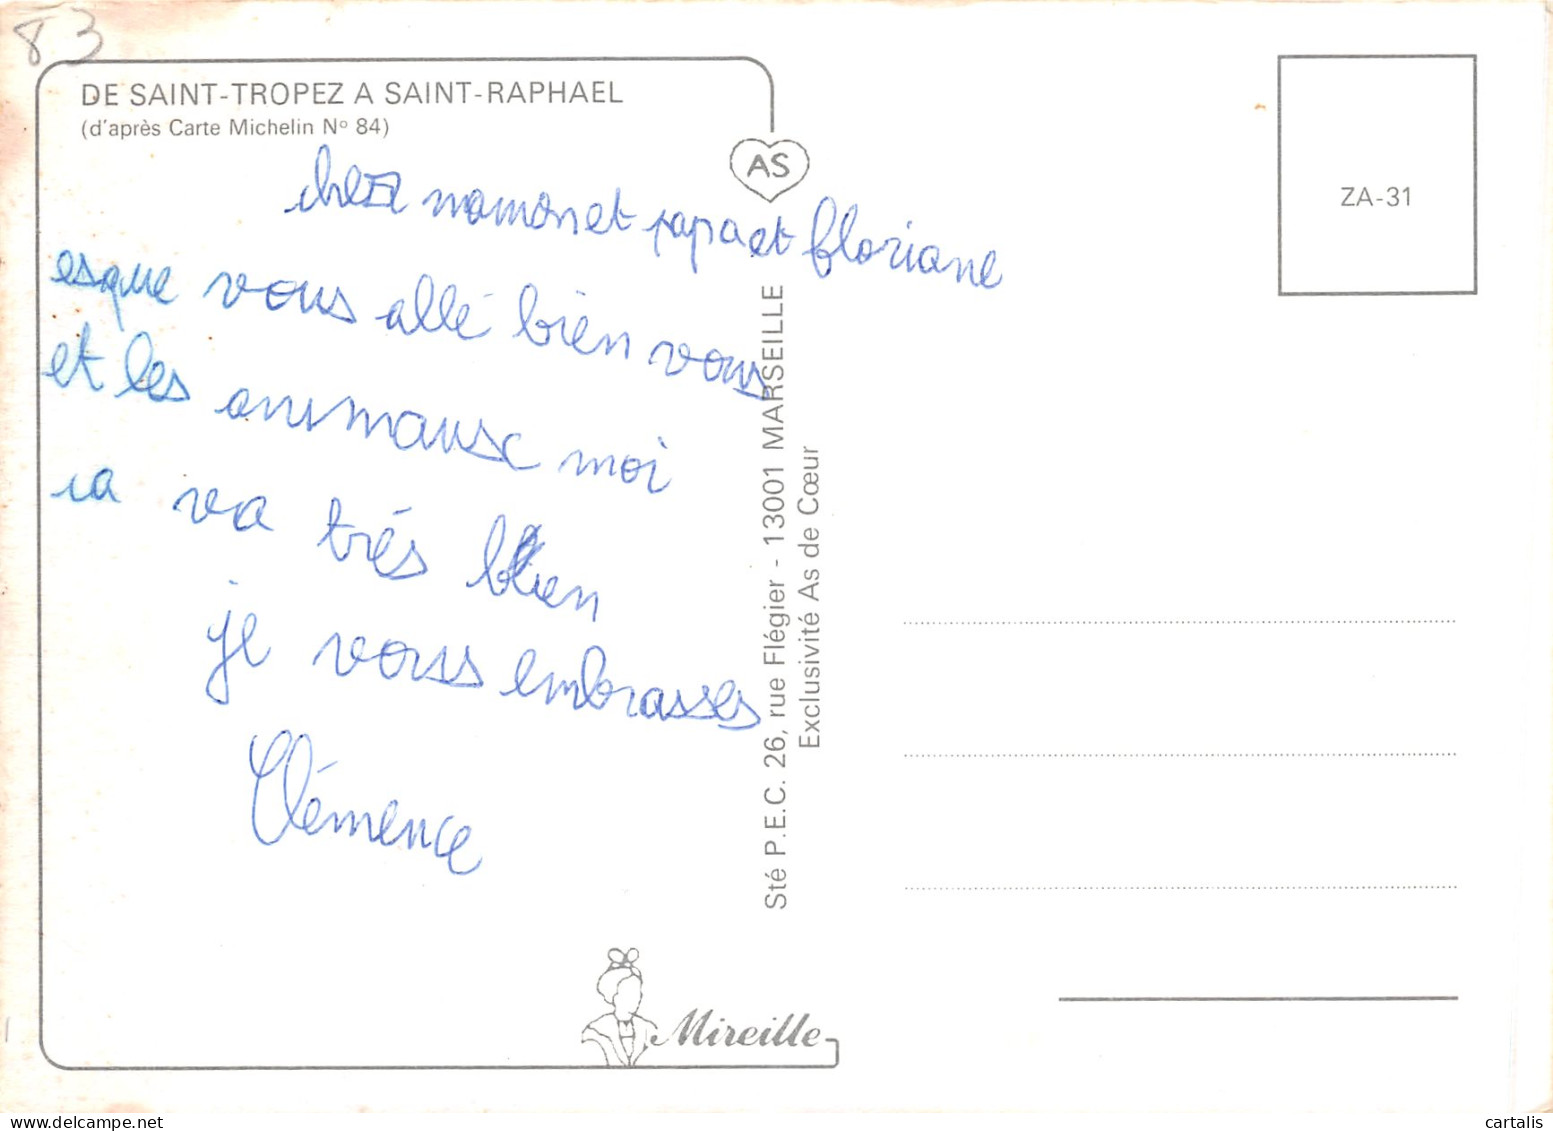 83
DE SAINT-TROPEZ A SAINT-RAPHAEL
(d'après Carte Michelin Nº 84)
AS
ZA-31
momon et papa et floriane
esque vous allé bien vous
et les animausc moi
ca va trés bien
je vous embrasses
Clémence
Sté P.E.C. 26, rue Flégier - 13001 MARSEILLE
Exclusivité As de Cœur
Mireille
cartalis